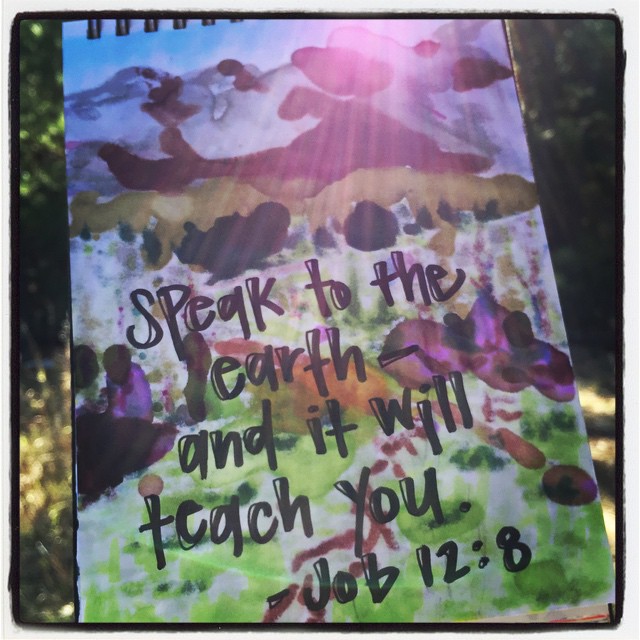 Speak to the
earth -
and it will
teach you.
- Job 12:8